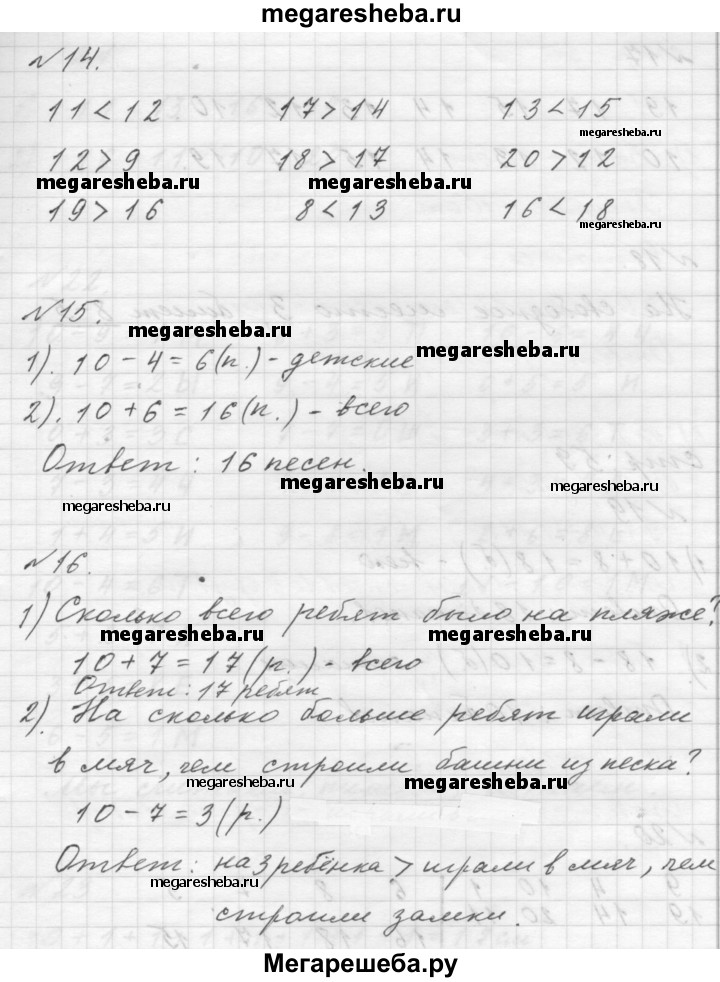 megaresheba.ru
№14.
11 < 12 17 > 14 13 < 15
megaresheba.ru
12 > 9 18 > 17 20 > 12
megaresheba.ru megaresheba.ru
19 > 16 8 < 13 16 < 18
megaresheba.ru
№15.
megaresheba.ru
1). 10 - 4 = 6 (п.) - детские
megaresheba.ru
2). 10 + 6 = 16 (п.) - всего
Ответ: 16 песен.
megaresheba.ru megaresheba.ru
megaresheba.ru
№16.
1) Сколько всего ребят было на пляже?
megaresheba.ru megaresheba.ru
10 + 7 = 17 (р.) - всего
Ответ: 17 ребят
2). На сколько больше ребят играли
в мяч, чем строили башни из песка?
megaresheba.ru megaresheba.ru
10 - 7 = 3 (р.)
Ответ: на 3 ребёнка > играли в мяч, чем
megaresheba.ru
строили замки.
Мегарешеба.ру